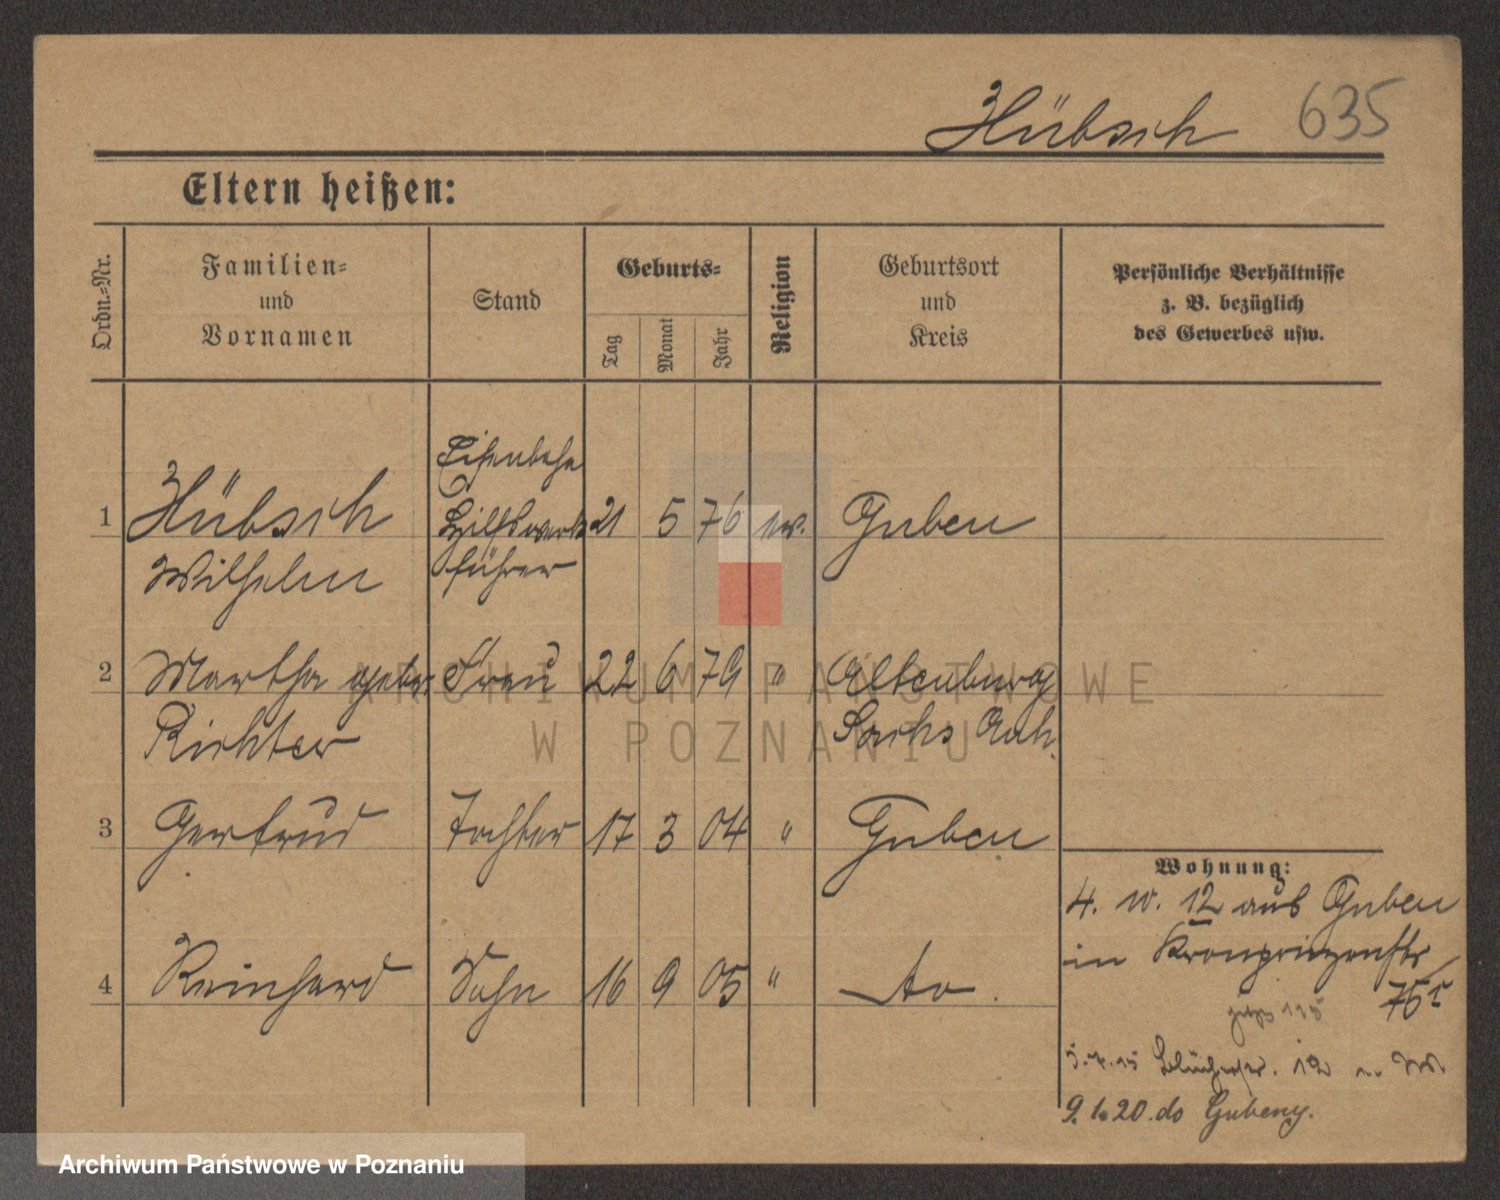 Hübsch 635
Eltern heißen:
Ordn.-Nr.
Familien-
und
Vornamen
Stand
Geburts-
Tag
Monat
Jahr
Religion
Geburtsort
und
Kreis
Persönliche Verhältnisse
z. B. bezüglich
des Gewerbes usw.
Eisenbahn
1 Hübsch Hilfswerk 21 5 76 ev. Guben
Wilhelm führer
2 Martha geb. Frau 22 6 79 " Altenburg
Richter Sachs Anh.
3 Gertrud Tochter 17 3 04 " Guben
Wohnung:
4. 10. 12 aus Guben
4 Reinhard Sohn 16 9 05 " do.
in Kronprinzenstr
75
115
Blücherstr. 12
9. 1. 20. do Guben
ARCHIWUM PAŃSTWOWE
W POZNANIU
Archiwum Państwowe w Poznaniu